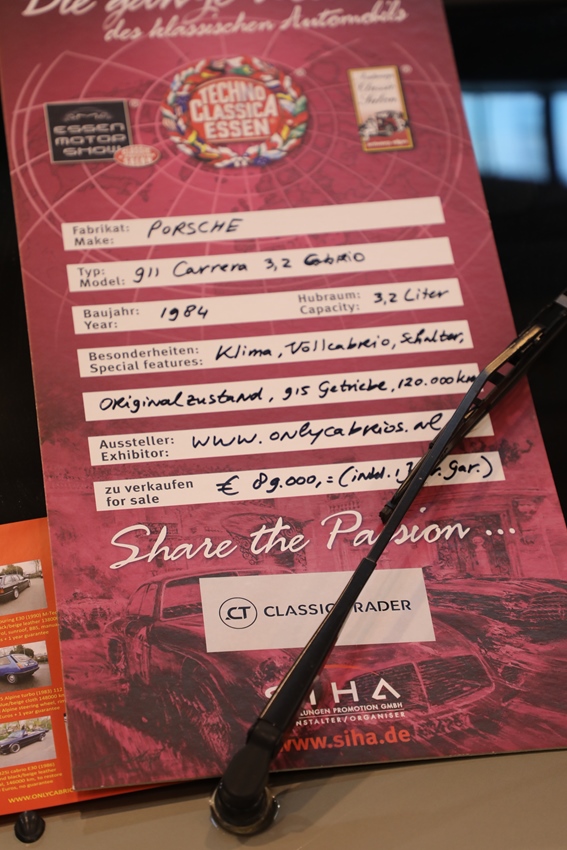 Die
des klassischen Automobils
ESSEN
MOTOR
SHOW
TECHNO
CLASSICA
ESSEN
Fabrikat:
Make:
PORSCHE
Typ:
Model:
911 Carrera 3,2 Cabrio
Baujahr:
Year:
1984
Hubraum:
Capacity:
3,2 Liter
Besonderheiten:
Special features:
Klima, Vollcabrio, Schalter,
Originalzustand, 915 Getriebe, 120.000 km
Aussteller:
Exhibitor:
www.onlycabrios.nl
zu verkaufen
for sale
€ 89.000,= (inkl. 1 Gar.)
Share the Pa sion ...
CT CLASSIC TRADER
SIHA
LUNGEN PROMOTION GMBH
NSTALTER/ORGANISER
www.siha.de
WWW.ONLYCABRI